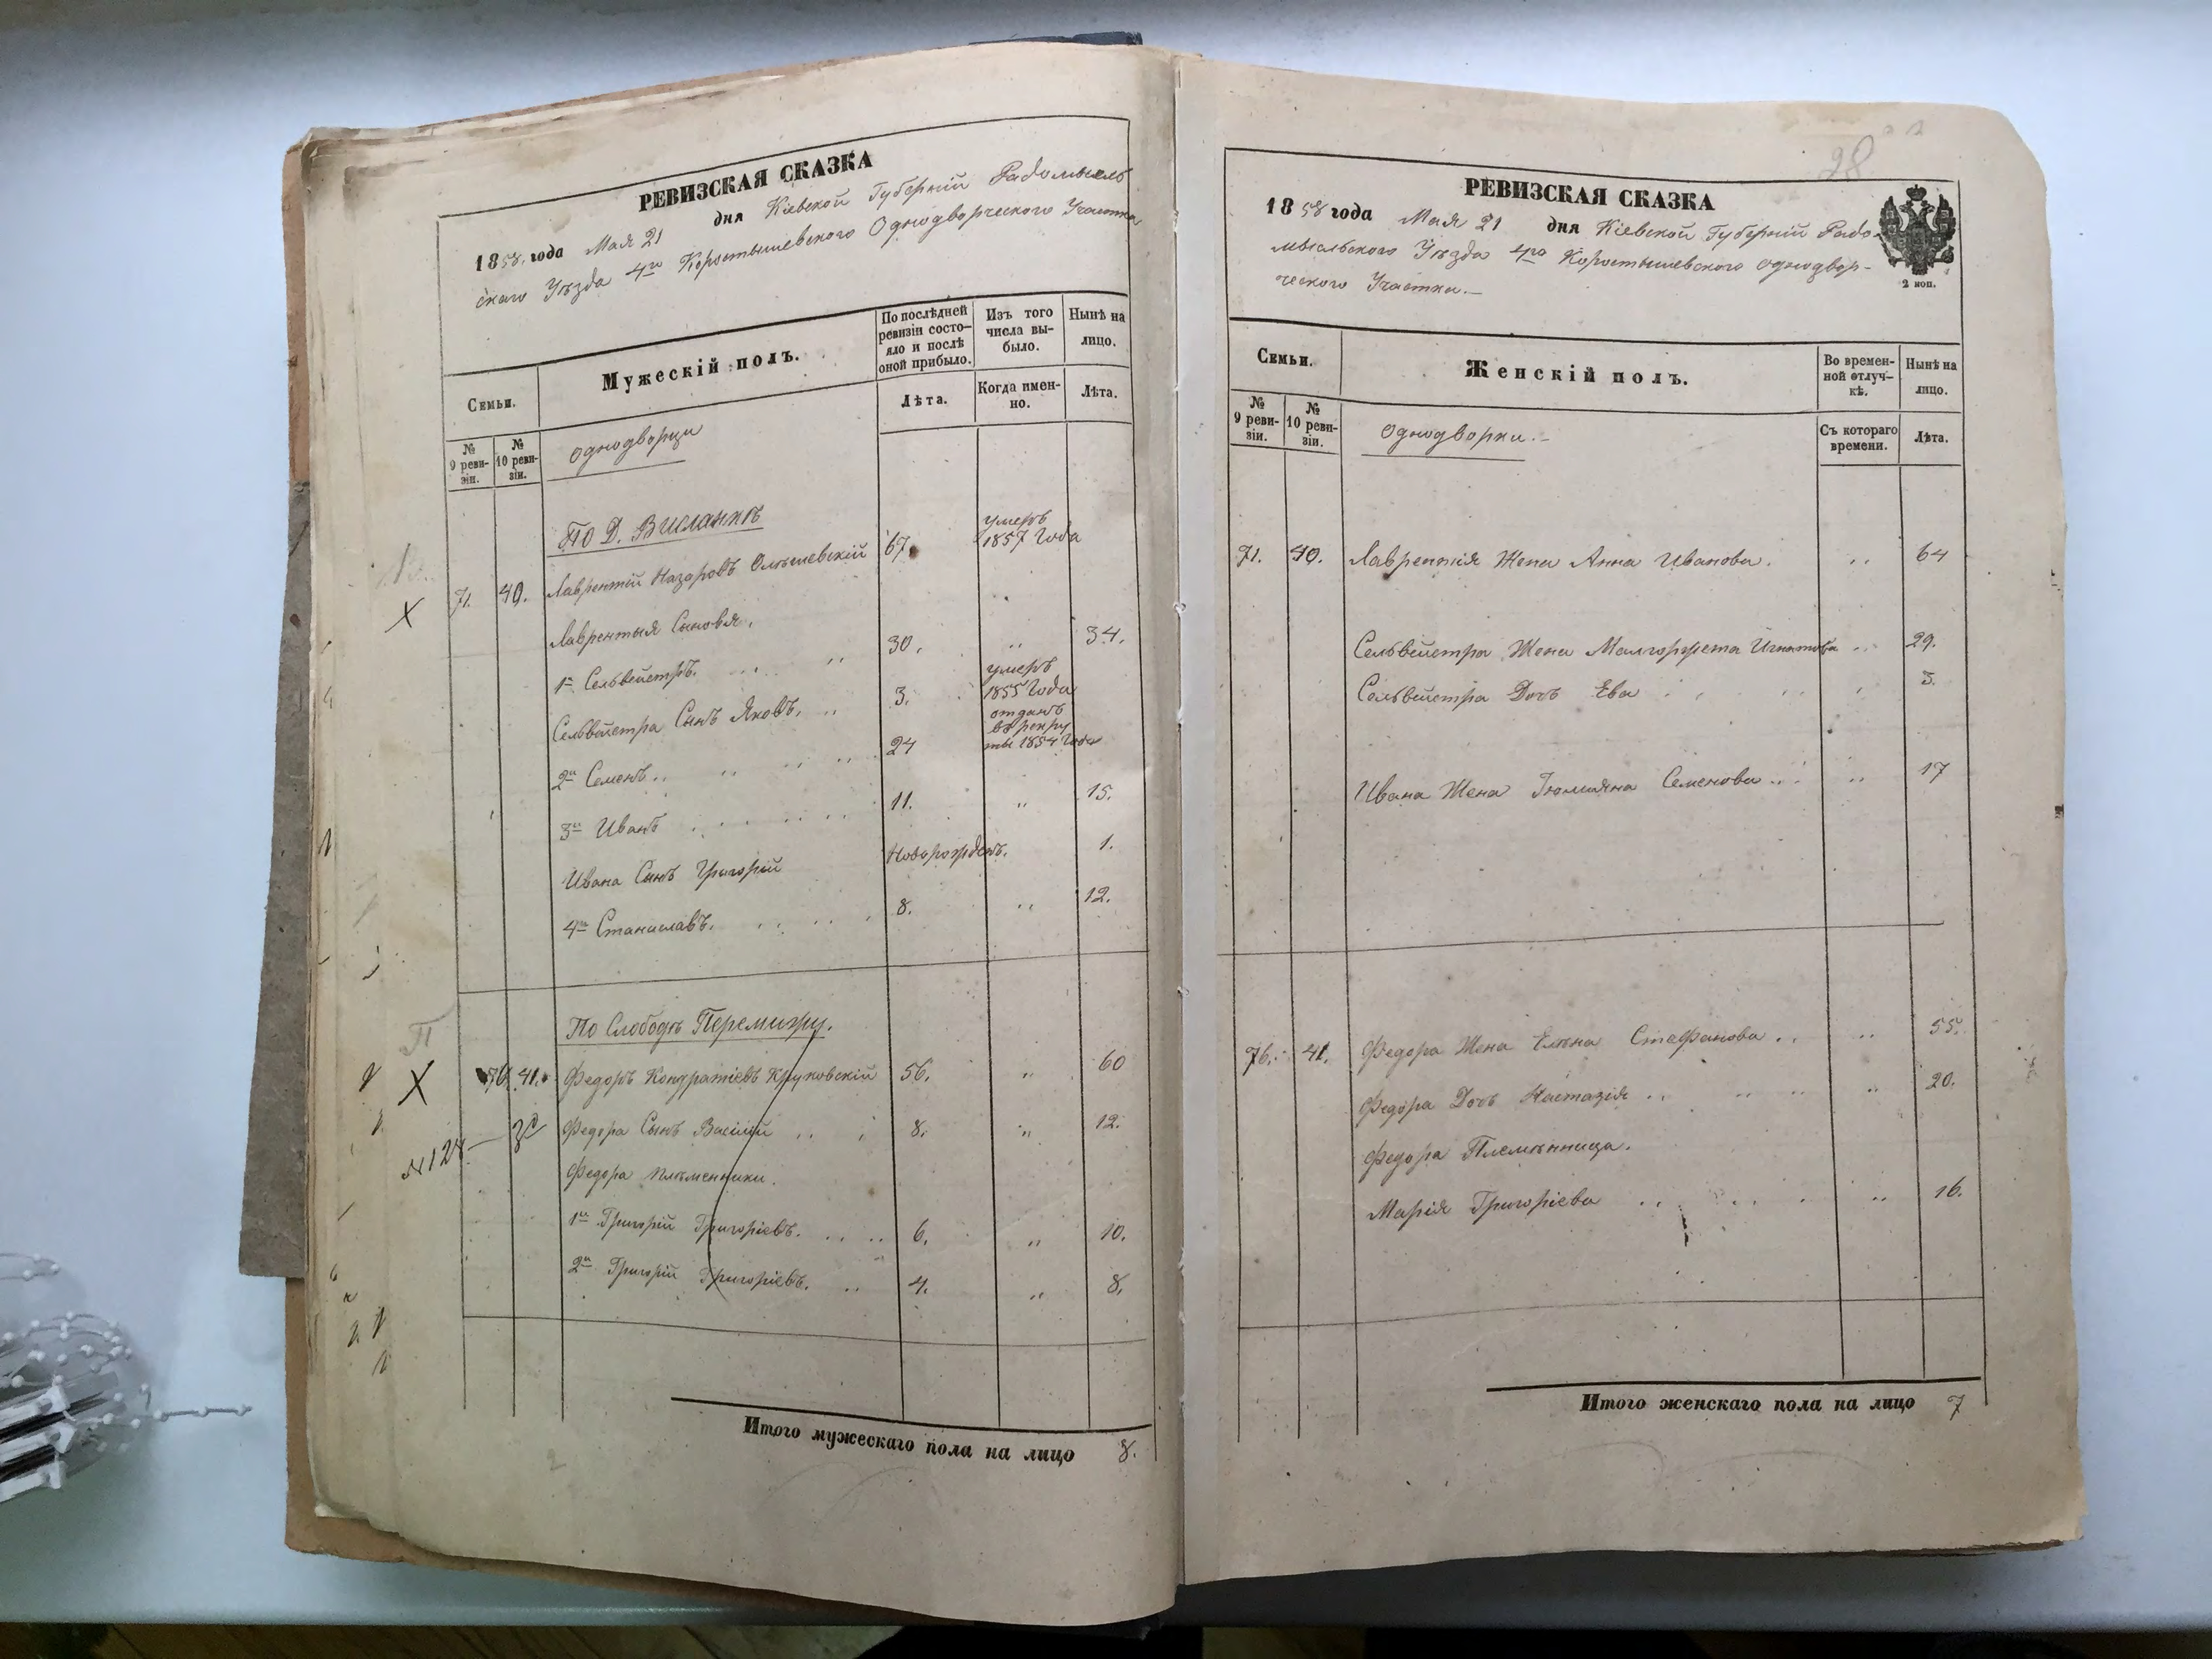 РЕВИЗСКАЯ СКАЗКА
1858 года Мая 21 дня Кіевской Губерніи Радомысль
скаго Уѣзда 4го Коростышевского Однодворческого Участка
Семьи.
Мужескій полъ.
По послѣдней ревизіи состо- яло и послѣ оной прибыло.
Изъ того числа вы- было.
Нынѣ на лицо.
№ 9 реви- зіи.
№ 10 реви- зіи.
Лѣта.
Когда имен- но.
Лѣта.
Однодворци
По Д. Вилланкѣ
71. 40. Лаврентій Назаровъ Олшевскій 67. умеръ 1857 Года
Лаврентыя Сыновья.
1й Сельвейстръ. 30. „ 34.
Сельвейстра Сынъ Яковъ. 3. умеръ 1855 Года
2й Семенъ. 24 отданъ въ рекру ты 1854 Года
3й Иванъ 11. „ 15.
Ивана Сынъ Григорій Новорожденъ. 1.
4й Станиславъ. 8. „ 12.
По Слободѣ Перемижу.
П
Х 76. 41. Федоръ Кондратіевъ Круковскій 56. „ 60
№128 Федора Сынъ Василій 8. „ 12.
Федора племенники.
1й Григорій Григоріевъ. 6. „ 10.
2й Григорій Григоріевъ. 4. „ 8.
Итого мужескаго пола на лицо 8.
28
РЕВИЗСКАЯ СКАЗКА
1858 года Мая 21 дня Кіевской Губерніи Радо-
мысльского Уѣзда 4го Коростышевского Однодвор-
ческого Участка.
2 коп.
Семьи.
Женскій полъ.
Во времен- ной отлуч- кѣ.
Нынѣ на лицо.
№ 9 реви- зіи.
№ 10 реви- зіи.
Съ котораго времени.
Лѣта.
Однодворки.
71. 40. Лаврентія Жена Анна Иванова. „ 64
Сельвейстра Жена Малгоржета Игнатова „ 29.
Сельвейстра Дочь Ева „ 3.
Ивана Жена Семенова „ 17
76. 41. Федора Жена Елѣна Стефанова „ 55.
Федора Дочь Настазія „ 20.
Федора Племѣнница.
Марія Григоріева „ 16.
Итого женскаго пола на лицо 7